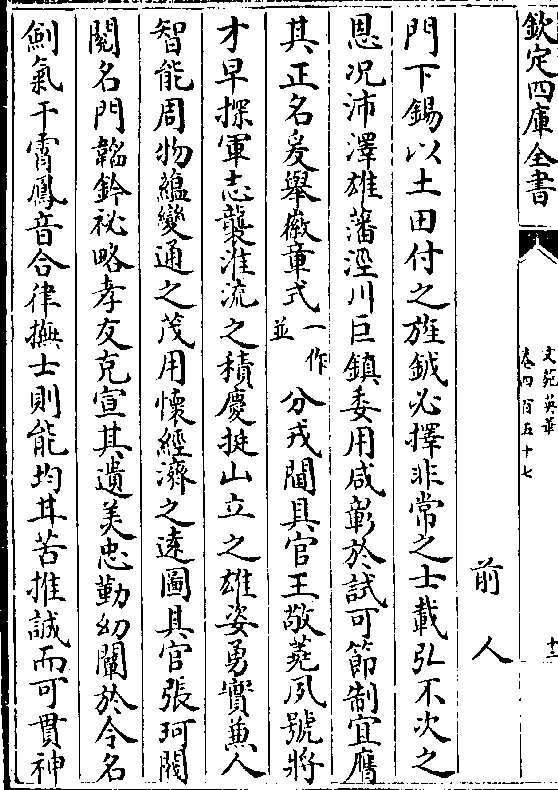 欽定四庫全書
文苑英華
卷四百五十七
十三
前人
門下錫以土田付之旌鉞必擇非常之士載弘不次之
恩况沛澤雄藩涇川巨鎮委用咸彰於試可節制宜膺
其正名爰舉徽章式一作並分戎閫具官王敬蕘夙號將
才早探軍志襲淮流之積慶挺山立之雄姿勇實兼人
智能周物蘊變通之茂用懷經濟之遠圖具官張珂閥
閱名門韜鈐祕略孝友克宣其遺美忠勤幼闡於令名
劍氣干霄鳳音合律撫士則能均甘苦推誠而可貫神